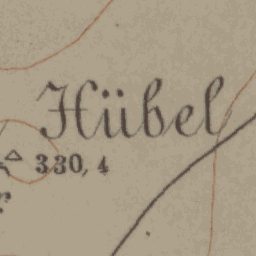 Hübel
330,4